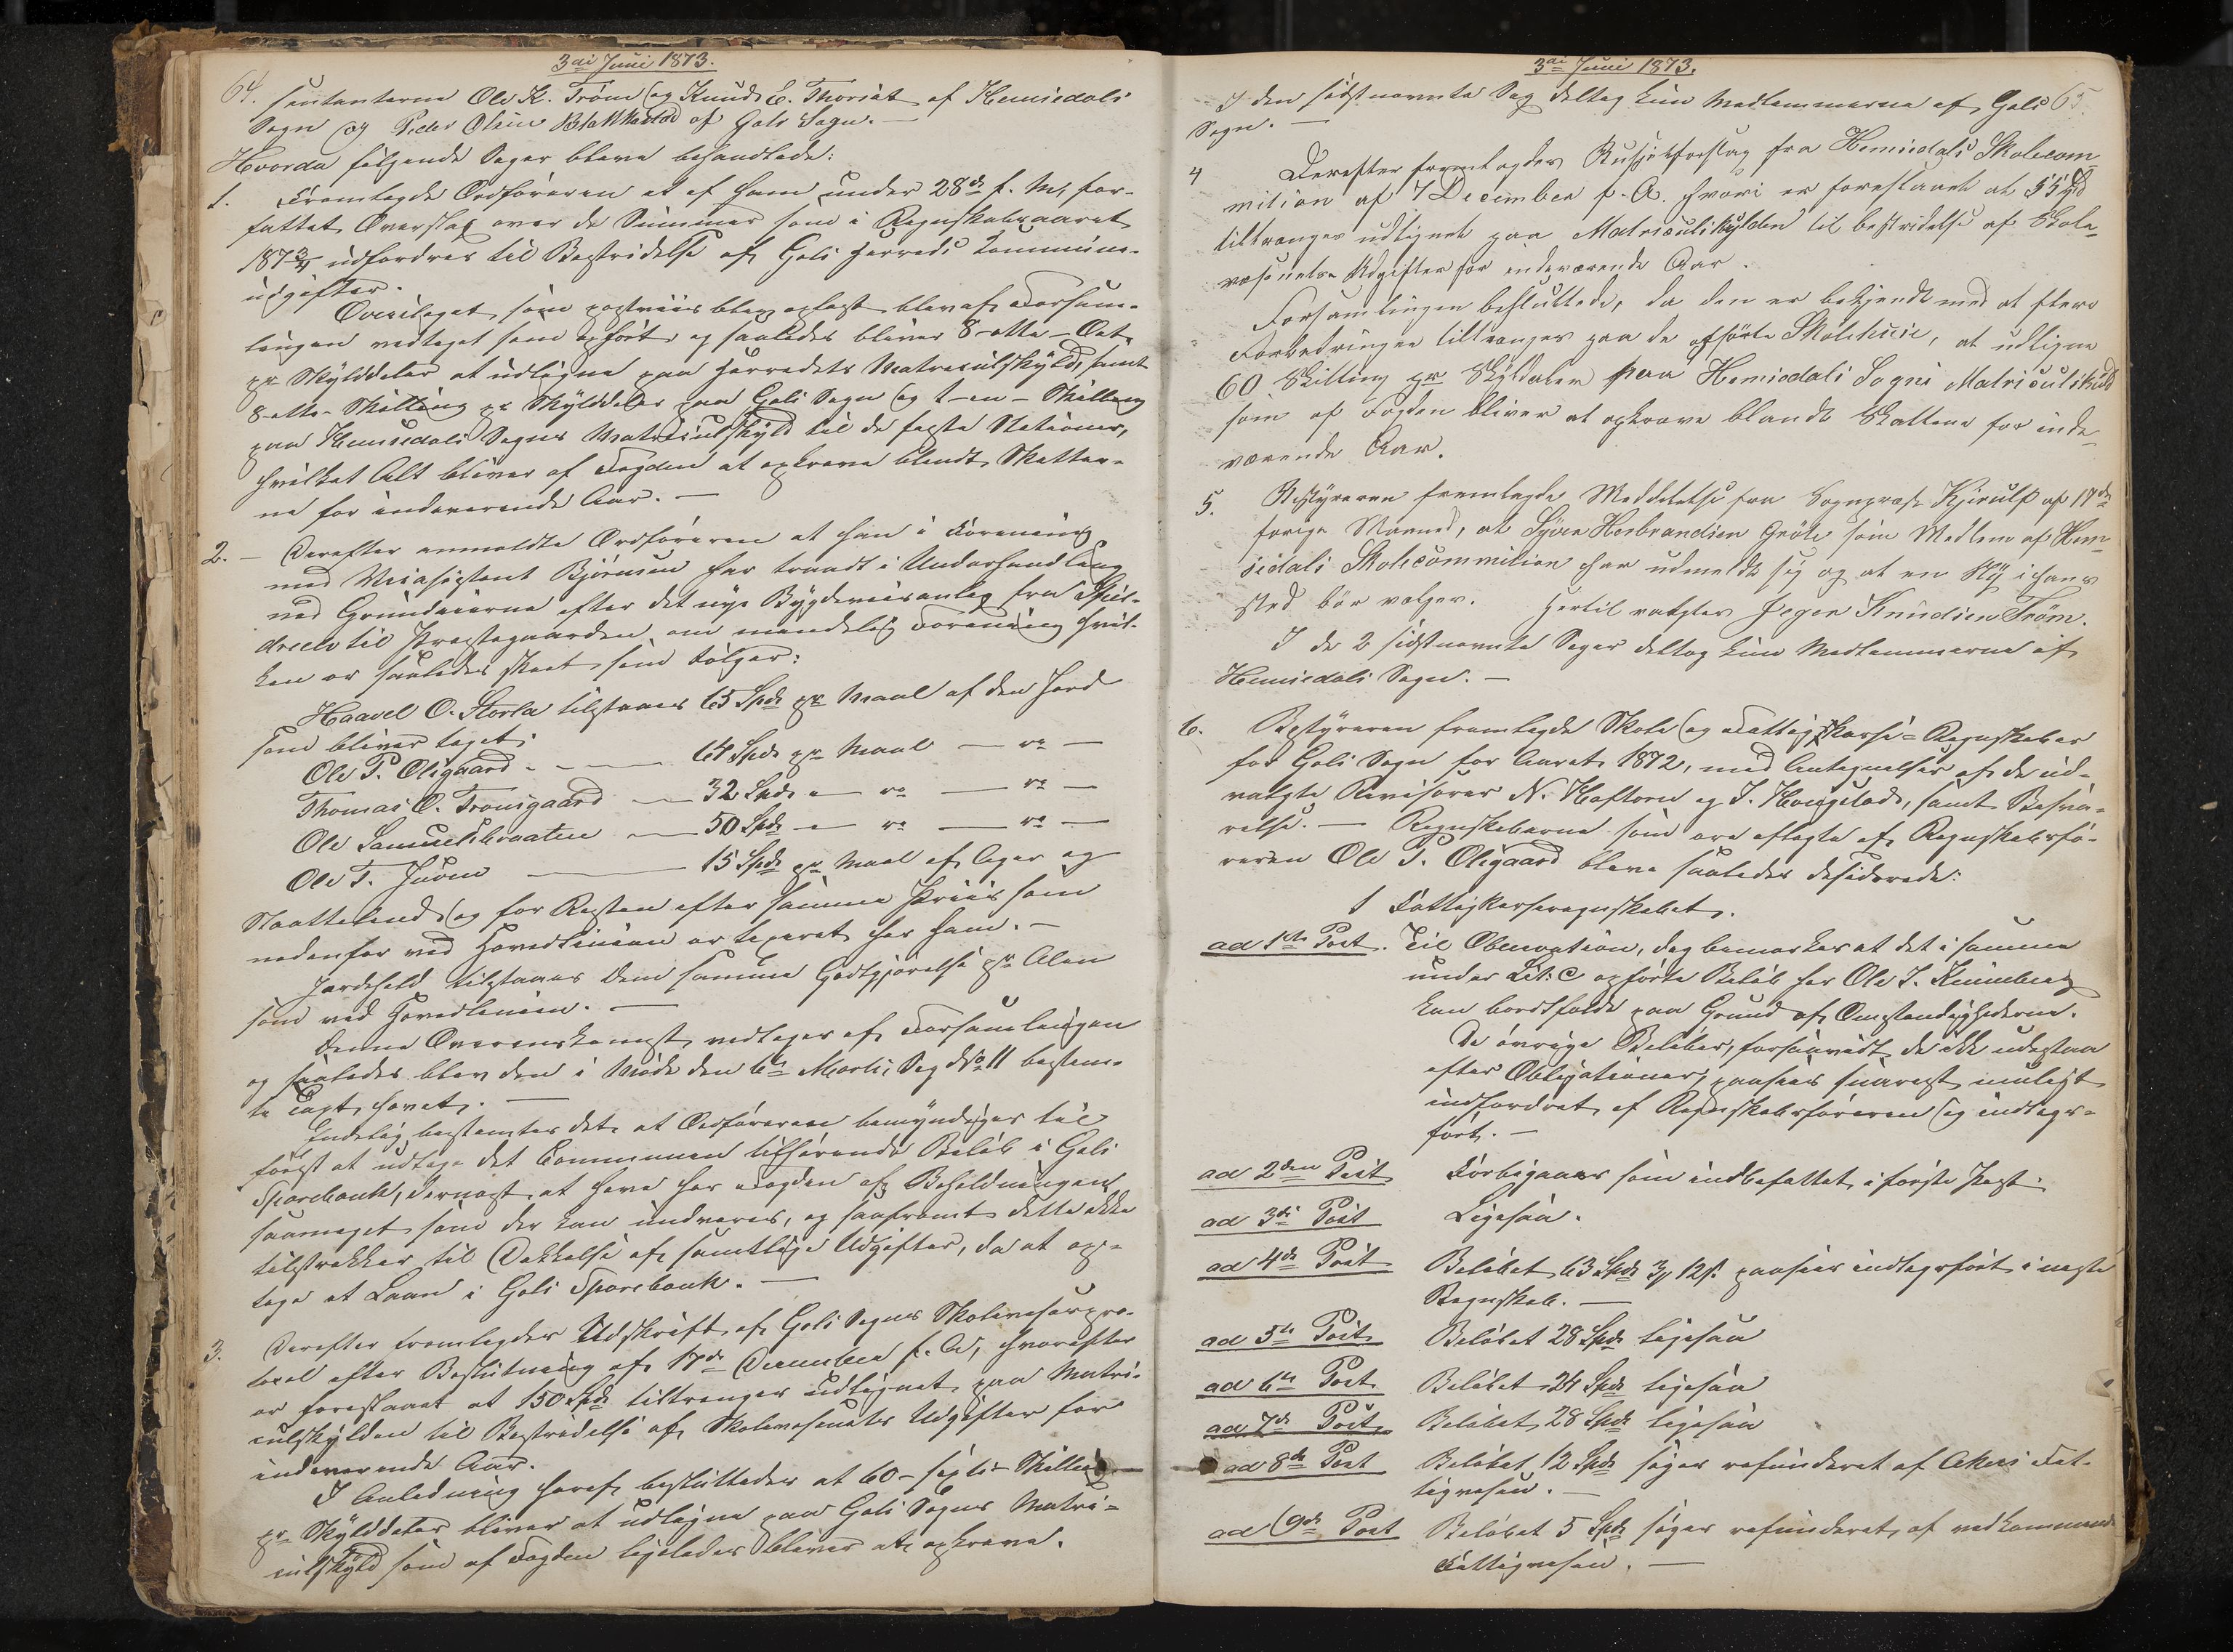 3die Juni 1873.
64. sentanterne Ole K. Trøm og Knud E. Thoriet af Hemsedals
Sogn og Peder Olsen af Gols Sogn. —
Hvorda følgende Sager bleve behandlede:
1. Fremlagde Ordføreren et af ham under 28de f. M. for-
fattet Overslag over de Summer som i Regnskabsaaret
1873/4 udfordres til Bestridelse af Gols Herreds Kommune-
udgifter.
Overslaget, som postviis blev oplæst, blev af Forsam-
lingen vedtaget som opført og saaledes bliver 8 - otte - Ort
pr Skylddaler at udligne paa Herredets Matriculskyld, samt
8 - otte - Skilling pr Skylddaler paa Gols Sogn og 1 - en - Skilling
paa Hemsedals Sogns Matriculskyld til de faste Stationer,
hvilket Alt bliver af Fogden at opkræve blandt Skatter-
ne for indeværende Aar. —
2. — Derefter anmeldte Ordføreren at han i Forening
med Veiasistent Bjørnsen har traadt i Underhandling
med Grundeierne efter det nye Bygdeveisanlæg fra
til Præstegaarden, om mindelig Forening hvil-
ken er saaledes skeet som følger:
Haavel O. Storla tilstaaes 65 Spd pr Maal af den Jord
som bliver taget:
Ole P. Olsgaard - — 64 Spd pr Maal — "
Thomas O. Trousgaard — 32 Spd - " — "
Ole Samuelsbraaten — 50 Spd - " — "
Ole T. Juven — 15 Spd pr Maal af Ager og
Slaattelend og for Resten efter samme Priis som
nedenfor ved Hovedlinien er taxeret for ham. —
Jordehold tilstaaes dem samme Godtgjørelse pr Alen
som ved Hovedlinien. —
Denne Overenskomst vedtages af Forsamlingen
og saaledes blev den i Møde den 6te Marts, Sag No 11 bestem-
te Taxt hævet. —
Endelig bestemtes det at Ordføreren bemyndiges til
først at udtage det Communen tilhørende Beløb i Gols
Sparebank, dernæst at hæve hos Fogden af Beholdningen
saameget som der kan undværes, og saafremt dette ikke
tilstrækker til Dækkelse af samtlige Udgifter, da at op-
tage et Laan i Gols Sparebank. —
3. Derefter fremlagdes Udskrift af Gols Sogns Skolevæsenspro-
tocol efter Beslutning af 17de December f. A., hvorefter
er foreslaaet at 150 Spd tiltrænges udlignet paa Matri-
culskylden til Bestridelse af Skolevæsenets Udgifter for
indeværende Aar.
I Anledning heraf besluttedes at 60 - sexti - Skilling
pr Skylddaler bliver at udligne paa Gols Sogns Matri-
culskyld som af Fogden ligeledes bliver at opkræve.
3die Juni 1873.
I den sidstnævnte Sag deltog kun Medlemmerne af Gols 65.
Sogn. —
4 Derefter fremlagdes Budjetforslag fra Hemsedals Skolecom-
mision af 7 December f. A. hvori er foreslaaet at 55 Spd
tiltrænges udlignet paa Matriculskylden til bestridelse af Skole-
væsenets Udgifter for indeværende Aar.
Forsamlingen besluttede, da den er bekjendt med at flere
Forbedringer tiltrænges paa de opførte Skolehuse, at udligne
60 Skilling pr Skyldaler paa Hemsedals Sogns Matriculskyld
som af Fogden bliver at opkræve blandt Skattene for inde-
værende Aar.
5. Bestyreren fremlagde Meddelelse fra Sognepræst Kjerulf af 17de
forige Maaned, at Syver Herbrandsen Grøte som Medlem af Hem-
sedals Skolecommision har udmeldt sig og at en Ny i hans
sted bør vælges. Hertil valgtes Jeger Knudsen Trøm.
I de 2 sidstnævnte Sager deltog kun Medlemmerne af
Hemsedals Sogn. —
6. Bestyreren fremlagde Skole og Fattigkasse-Regnskaber
for Gols Sogn for Aaret 1872, med Antegnelser af de ud-
valgte Revisorer N. Haftorn og T. Hougstad, samt Besva-
relse. — Regnskaberne som ere aflagte af Regnskabsfø-
reren Ole P. Olsgaard bleve saaledes desiderede:
1 Fattigkasseregnskabet.
ad 1ste Post. Til Observation, dog bemærkes at det i samme
under Lit: C opførte Beløb hos Ole T.
kan bortfalde paa Grund af Omstendighederne.
De øvrige Beløber, forsaavidt de ikke udestaa
efter Obligationer, paasees snarest muligt
indfordret af Regnskabsføreren og indtægts-
ført. —
ad 2den Post Forbigaaes som indbefattet i første Post.
ad 3die Post Ligesaa.
ad 4de Post Beløbet 63 Spd 3/ 12 s. paasees indtægtsført i næste
Regnskab. —
ad 5te Post Beløbet 28 Spd ligesaa
ad 6te Post Beløbet 24 Spd ligesaa
ad 7de Post Beløbet 28 Spd ligesaa
ad 8de Post Beløbet 12 Spd søges refunderet af Akers Fat-
tigvæsen. —
ad 9de Post Beløbet 5 Spd søges refunderet af vedkommende
Fattigvæsen. —